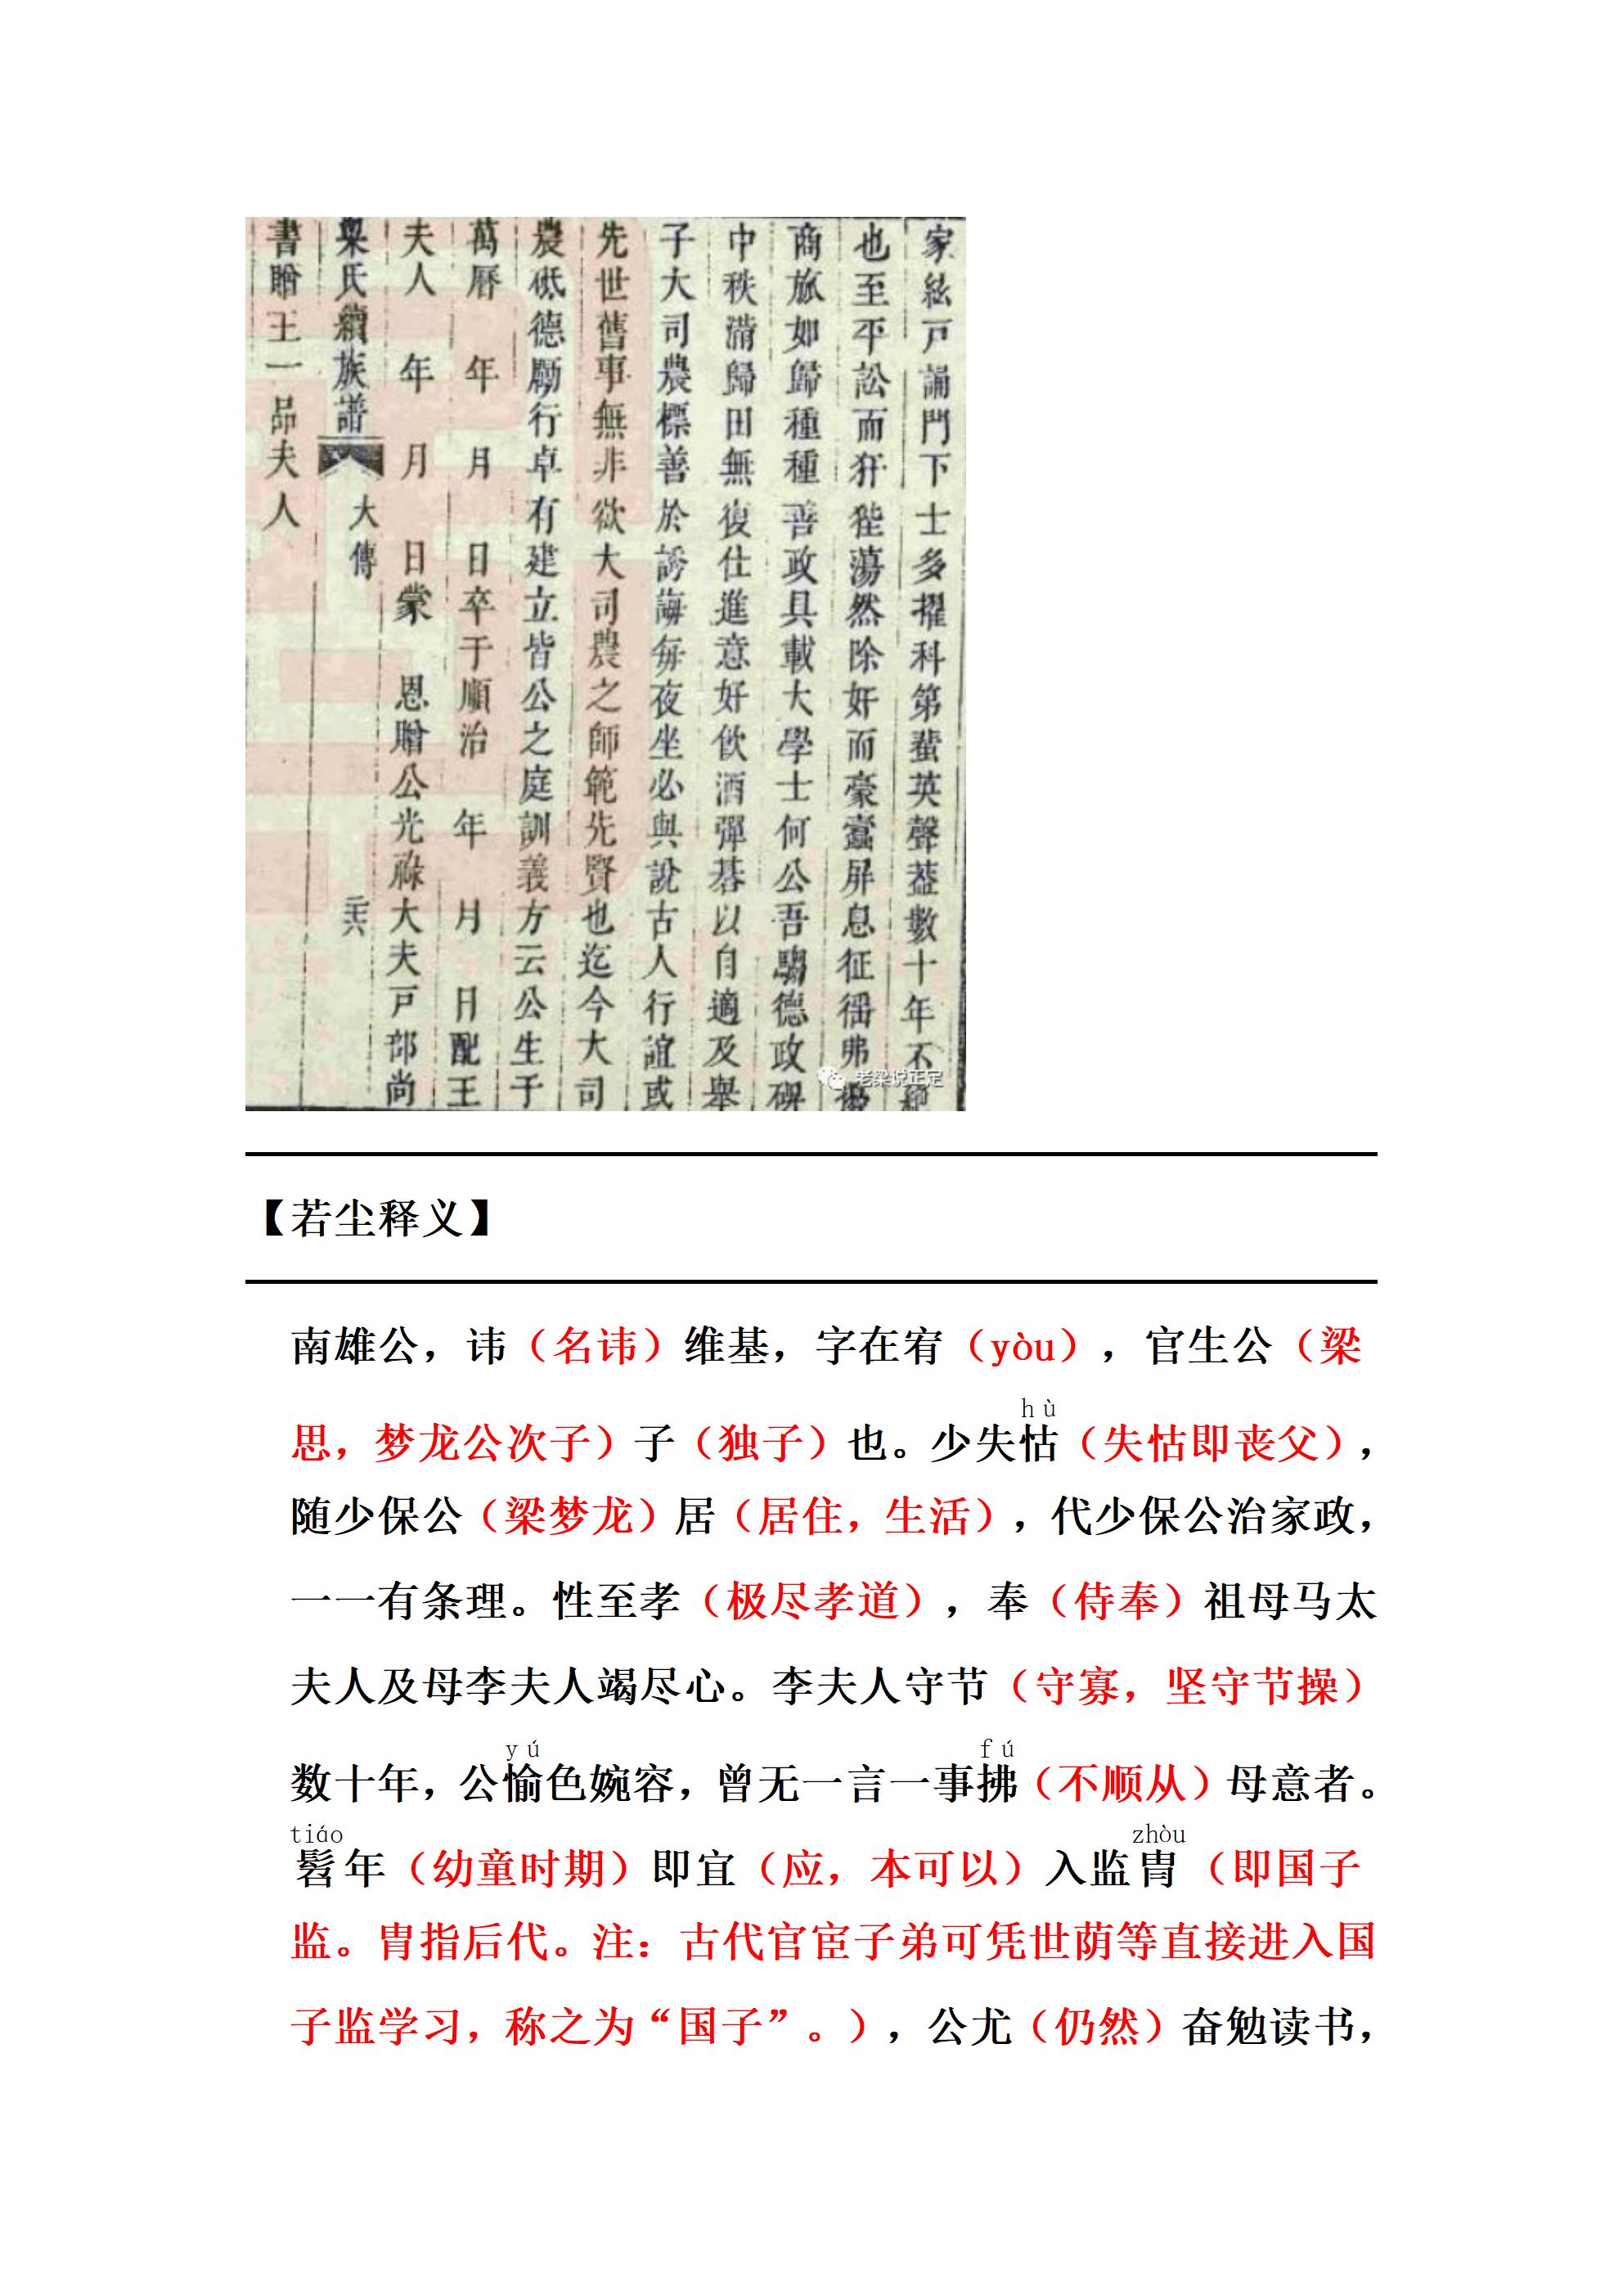 家絃戸誦門下士多擢科第蜚英聲葢數十年不
也至平訟而犴狴蕩然除奸而豪蠹屏息征徭弗
商旅如歸種種善政具載大學士何公吾騶德政碑
中秩滿歸田無復仕進意好飲酒彈碁以自適及舉
子大司農標善於誘誨每夜坐必與說古人行誼或
先世舊事無非欲大司農之師範先賢也迄今大司
農砥德勵行卓有建立皆公之庭訓義方云公生于
萬曆 年 月 日卒于順治 年 月 日配王
夫人 年 月 日蒙 恩贈公光祿大夫戸部尚
氏續族譜 大傳
書贈王一品夫人
老梁说正定
【若尘释义】
南雄公，讳（名讳）维基，字在宥（yòu），官生公（梁
hù
思，梦龙公次子）子（独子）也。少失怙（失怙即丧父），
随少保公（梁梦龙）居（居住，生活），代少保公治家政，
一一有条理。性至孝（极尽孝道），奉（侍奉）祖母马太
夫人及母李夫人竭尽心。李夫人守节（守寡，坚守节操）
yú fú
数十年，公愉色婉容，曾无一言一事拂（不顺从）母意者。
tiáo zhòu
髫年（幼童时期）即宜（应，本可以）入监胄（即国子
监。胄指后代。注：古代官宦子弟可凭世荫等直接进入国
子监学习，称之为“国子”。），公尤（仍然）奋勉读书，